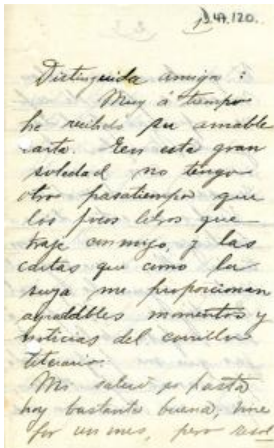 D47.120.
Distinguida amiga:
Muy á tiempo
he recibido su amable
carta. En esta gran
soledad no tengo
otro pasatiempo que
los pocos libros que
traje conmigo, y las
cartas que como la
suya me proporcionan
agradables momentos y
noticias del corrillo
literario.
Mi salud es hasta
hoy bastante buena, vine
por un mes, pero